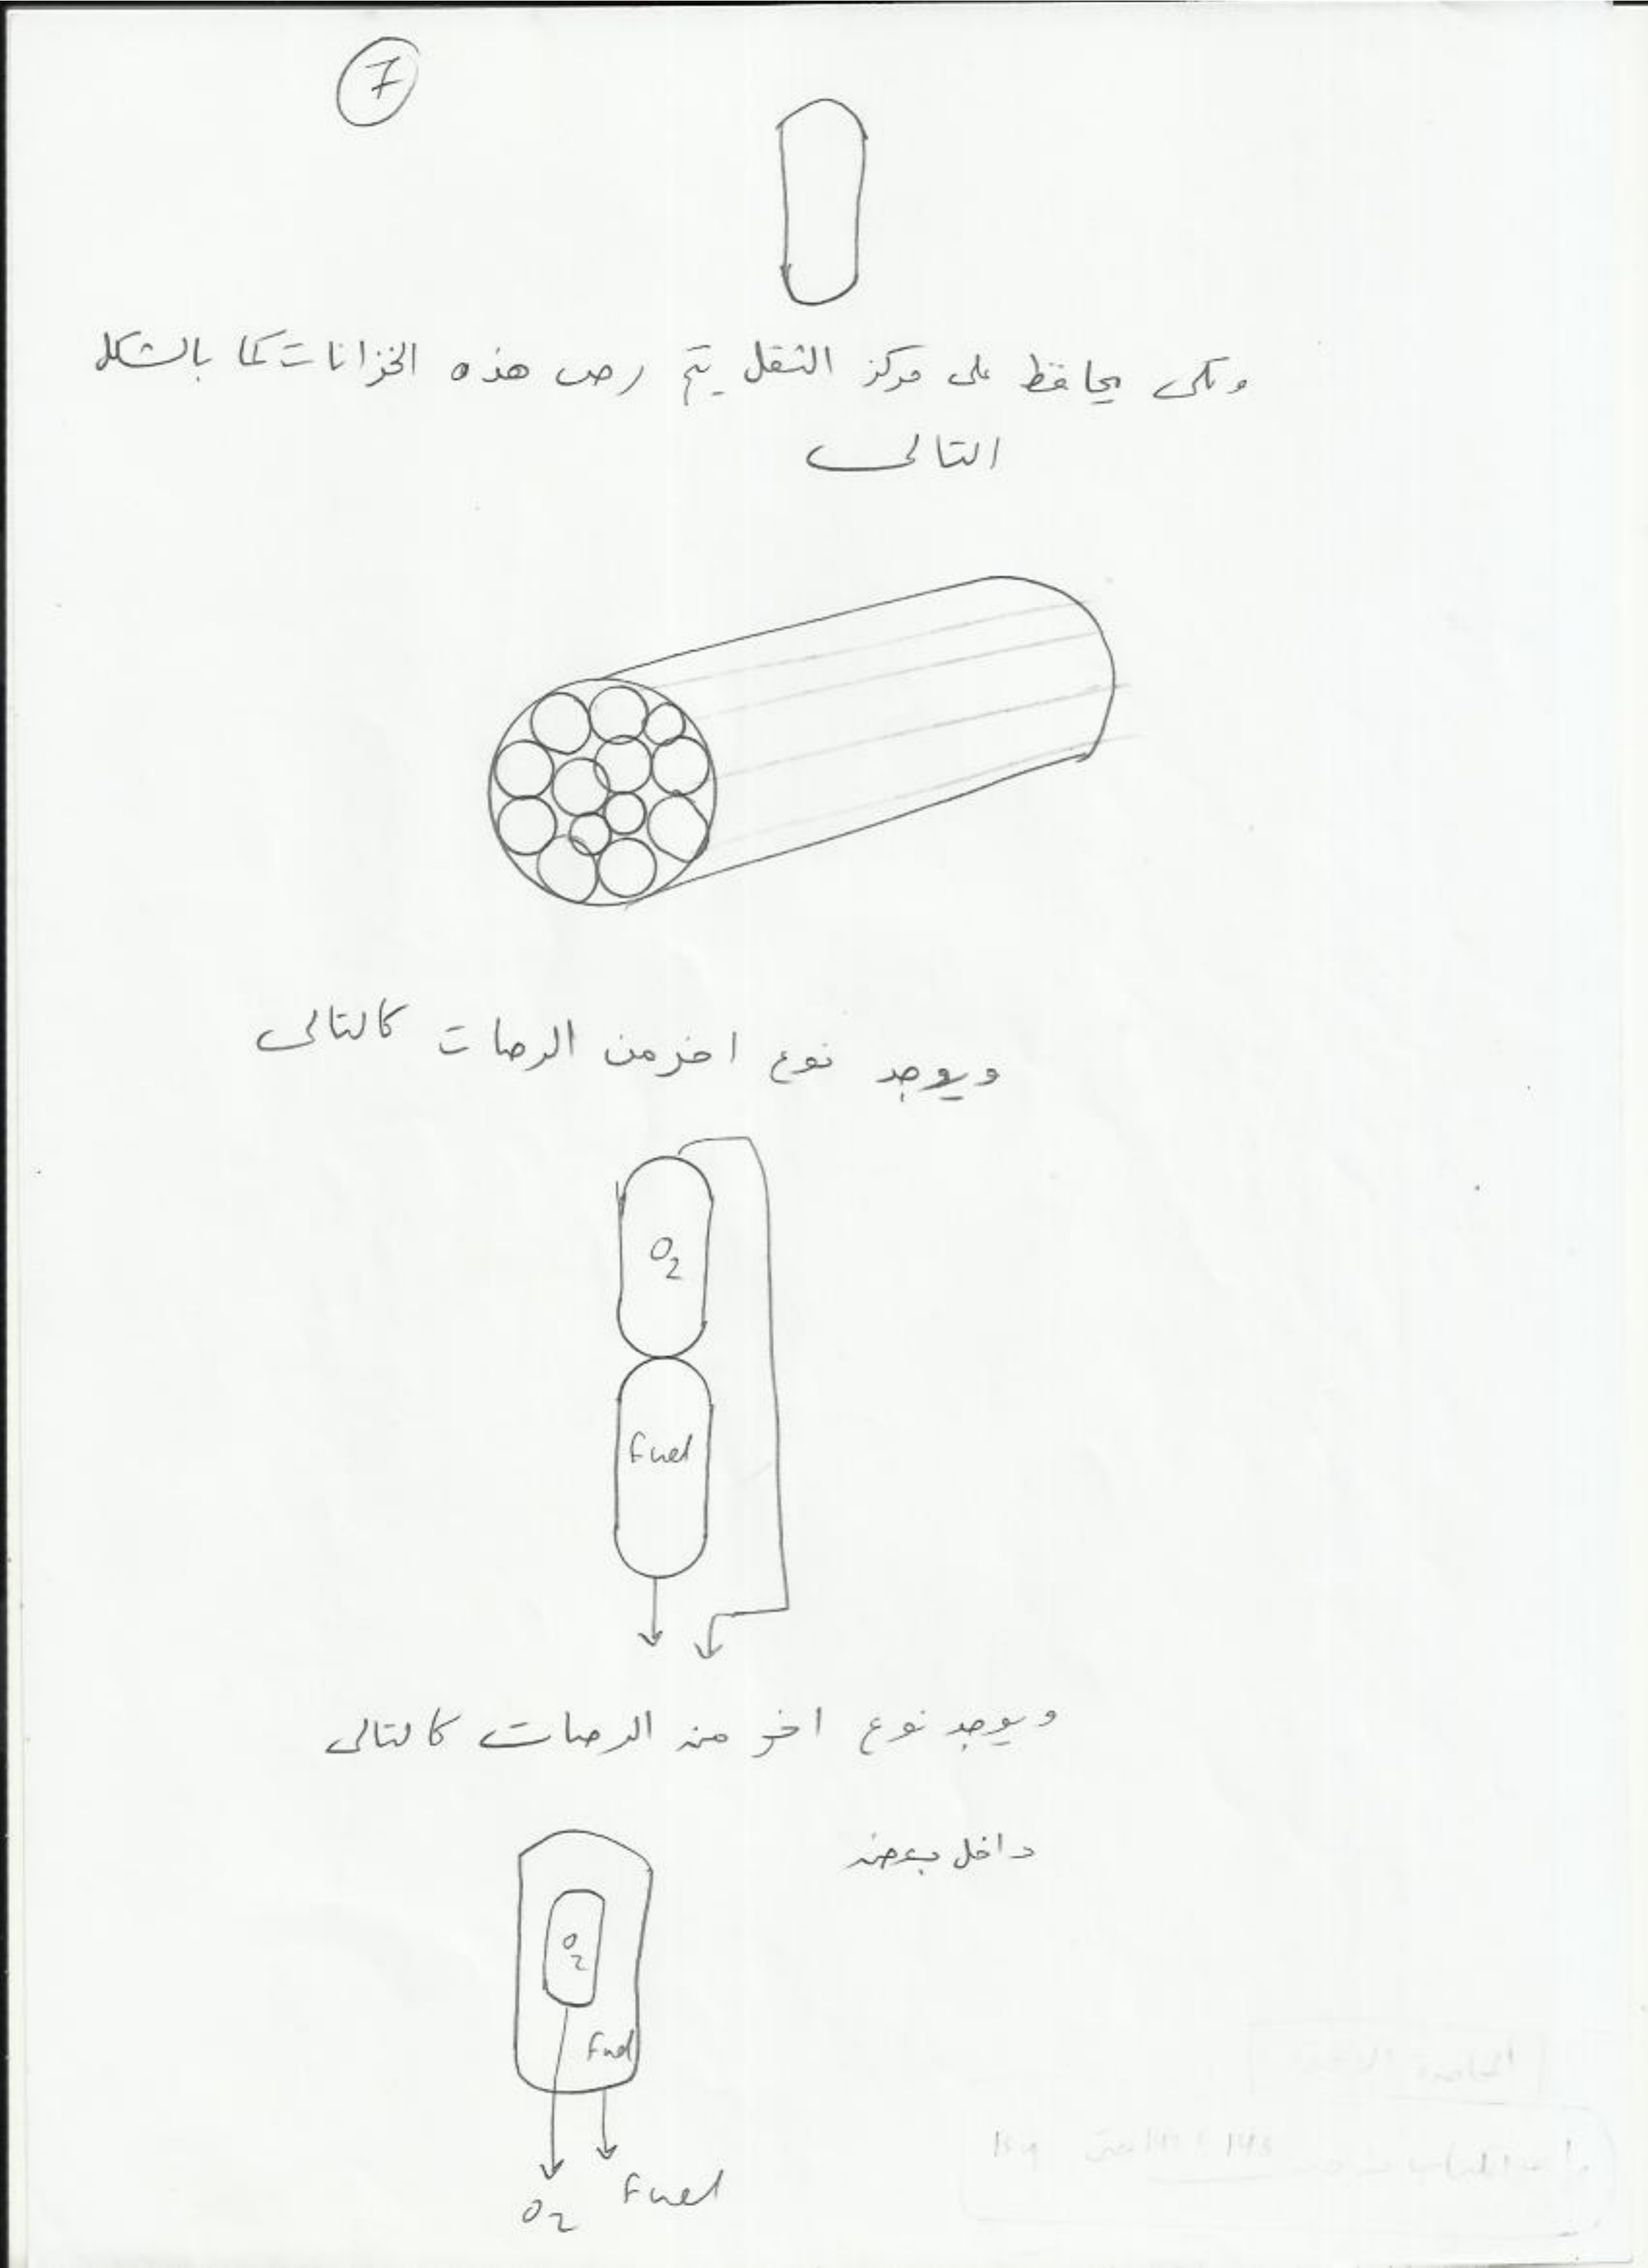 7
ولكى يحافظ على مركز الثقل يتم رص هذه الخزانات كما بالشكل
التالى
ويوجد نوع اخر من الرصات كالتالى
O2
fuel
ويوجد نوع اخر من الرصات كالتالى
داخل بعضه
O2
fuel
O2
fuel